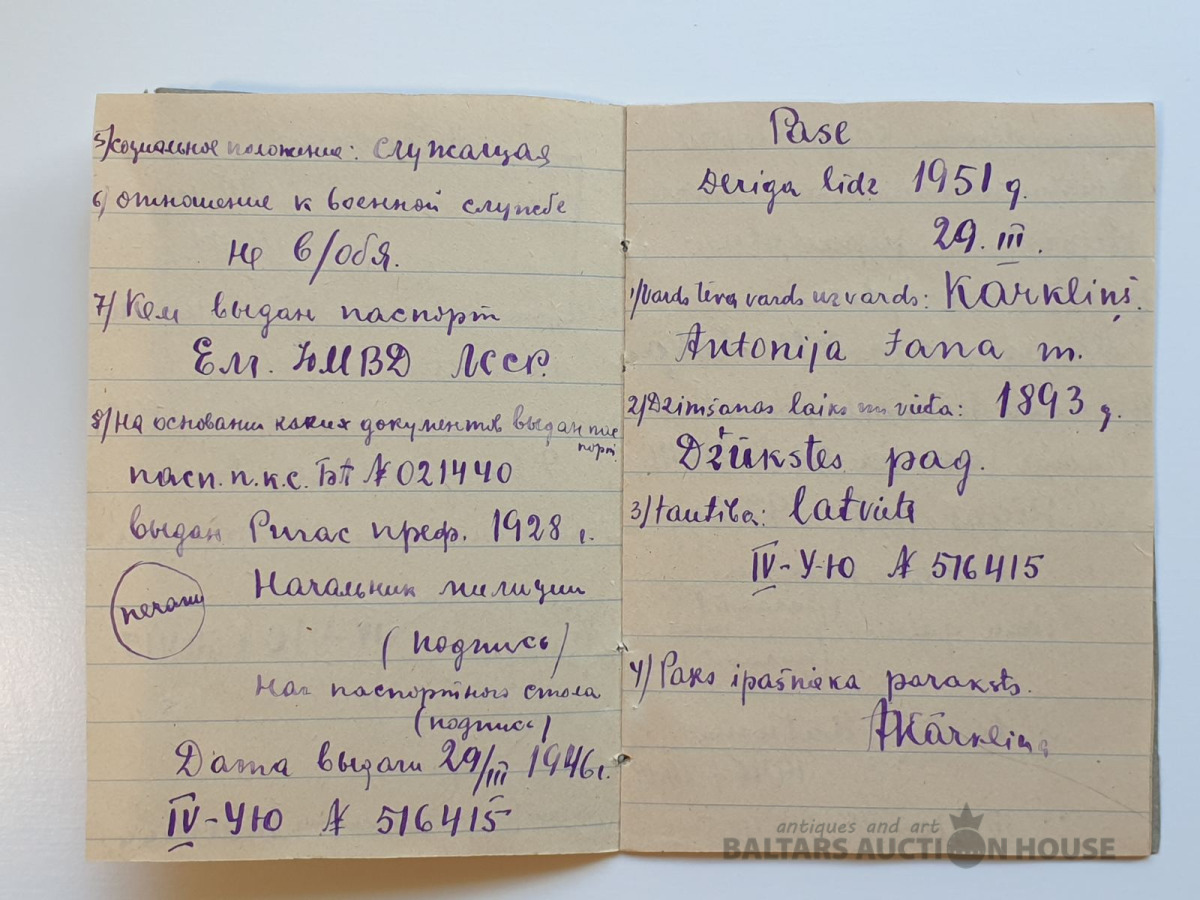 5) социальное положение: служащая
6) отношение к военной службе
не в/обя.
7) Кем выдан паспорт
Елг. УМВД ЛССР.
8) На основании каких документов выдан пас
порт.
пасп. п.к.с. БА № 021440
выдан Ригас преф. 1928 г.
печать
Начальник милиции
(подпись)
Нач паспортного стола
(подпись)
Дата выдачи 29/III 1946 г.
IV-УЮ № 516415
Pase
Deriga lidz 1951 g.
29. III.
1) Vards tēva vards uzvards: Kārkliņš.
Antonija Jana m.
2) Dzimšanas laiks un vieta: 1893 g.
Džūkstes pag.
3) tautiba: latviete
IV-УЮ № 516415
4) Pases ipašnieka paraksts.
AKārkliņa
antiques and art
BALTARS AUCTION HOUSE